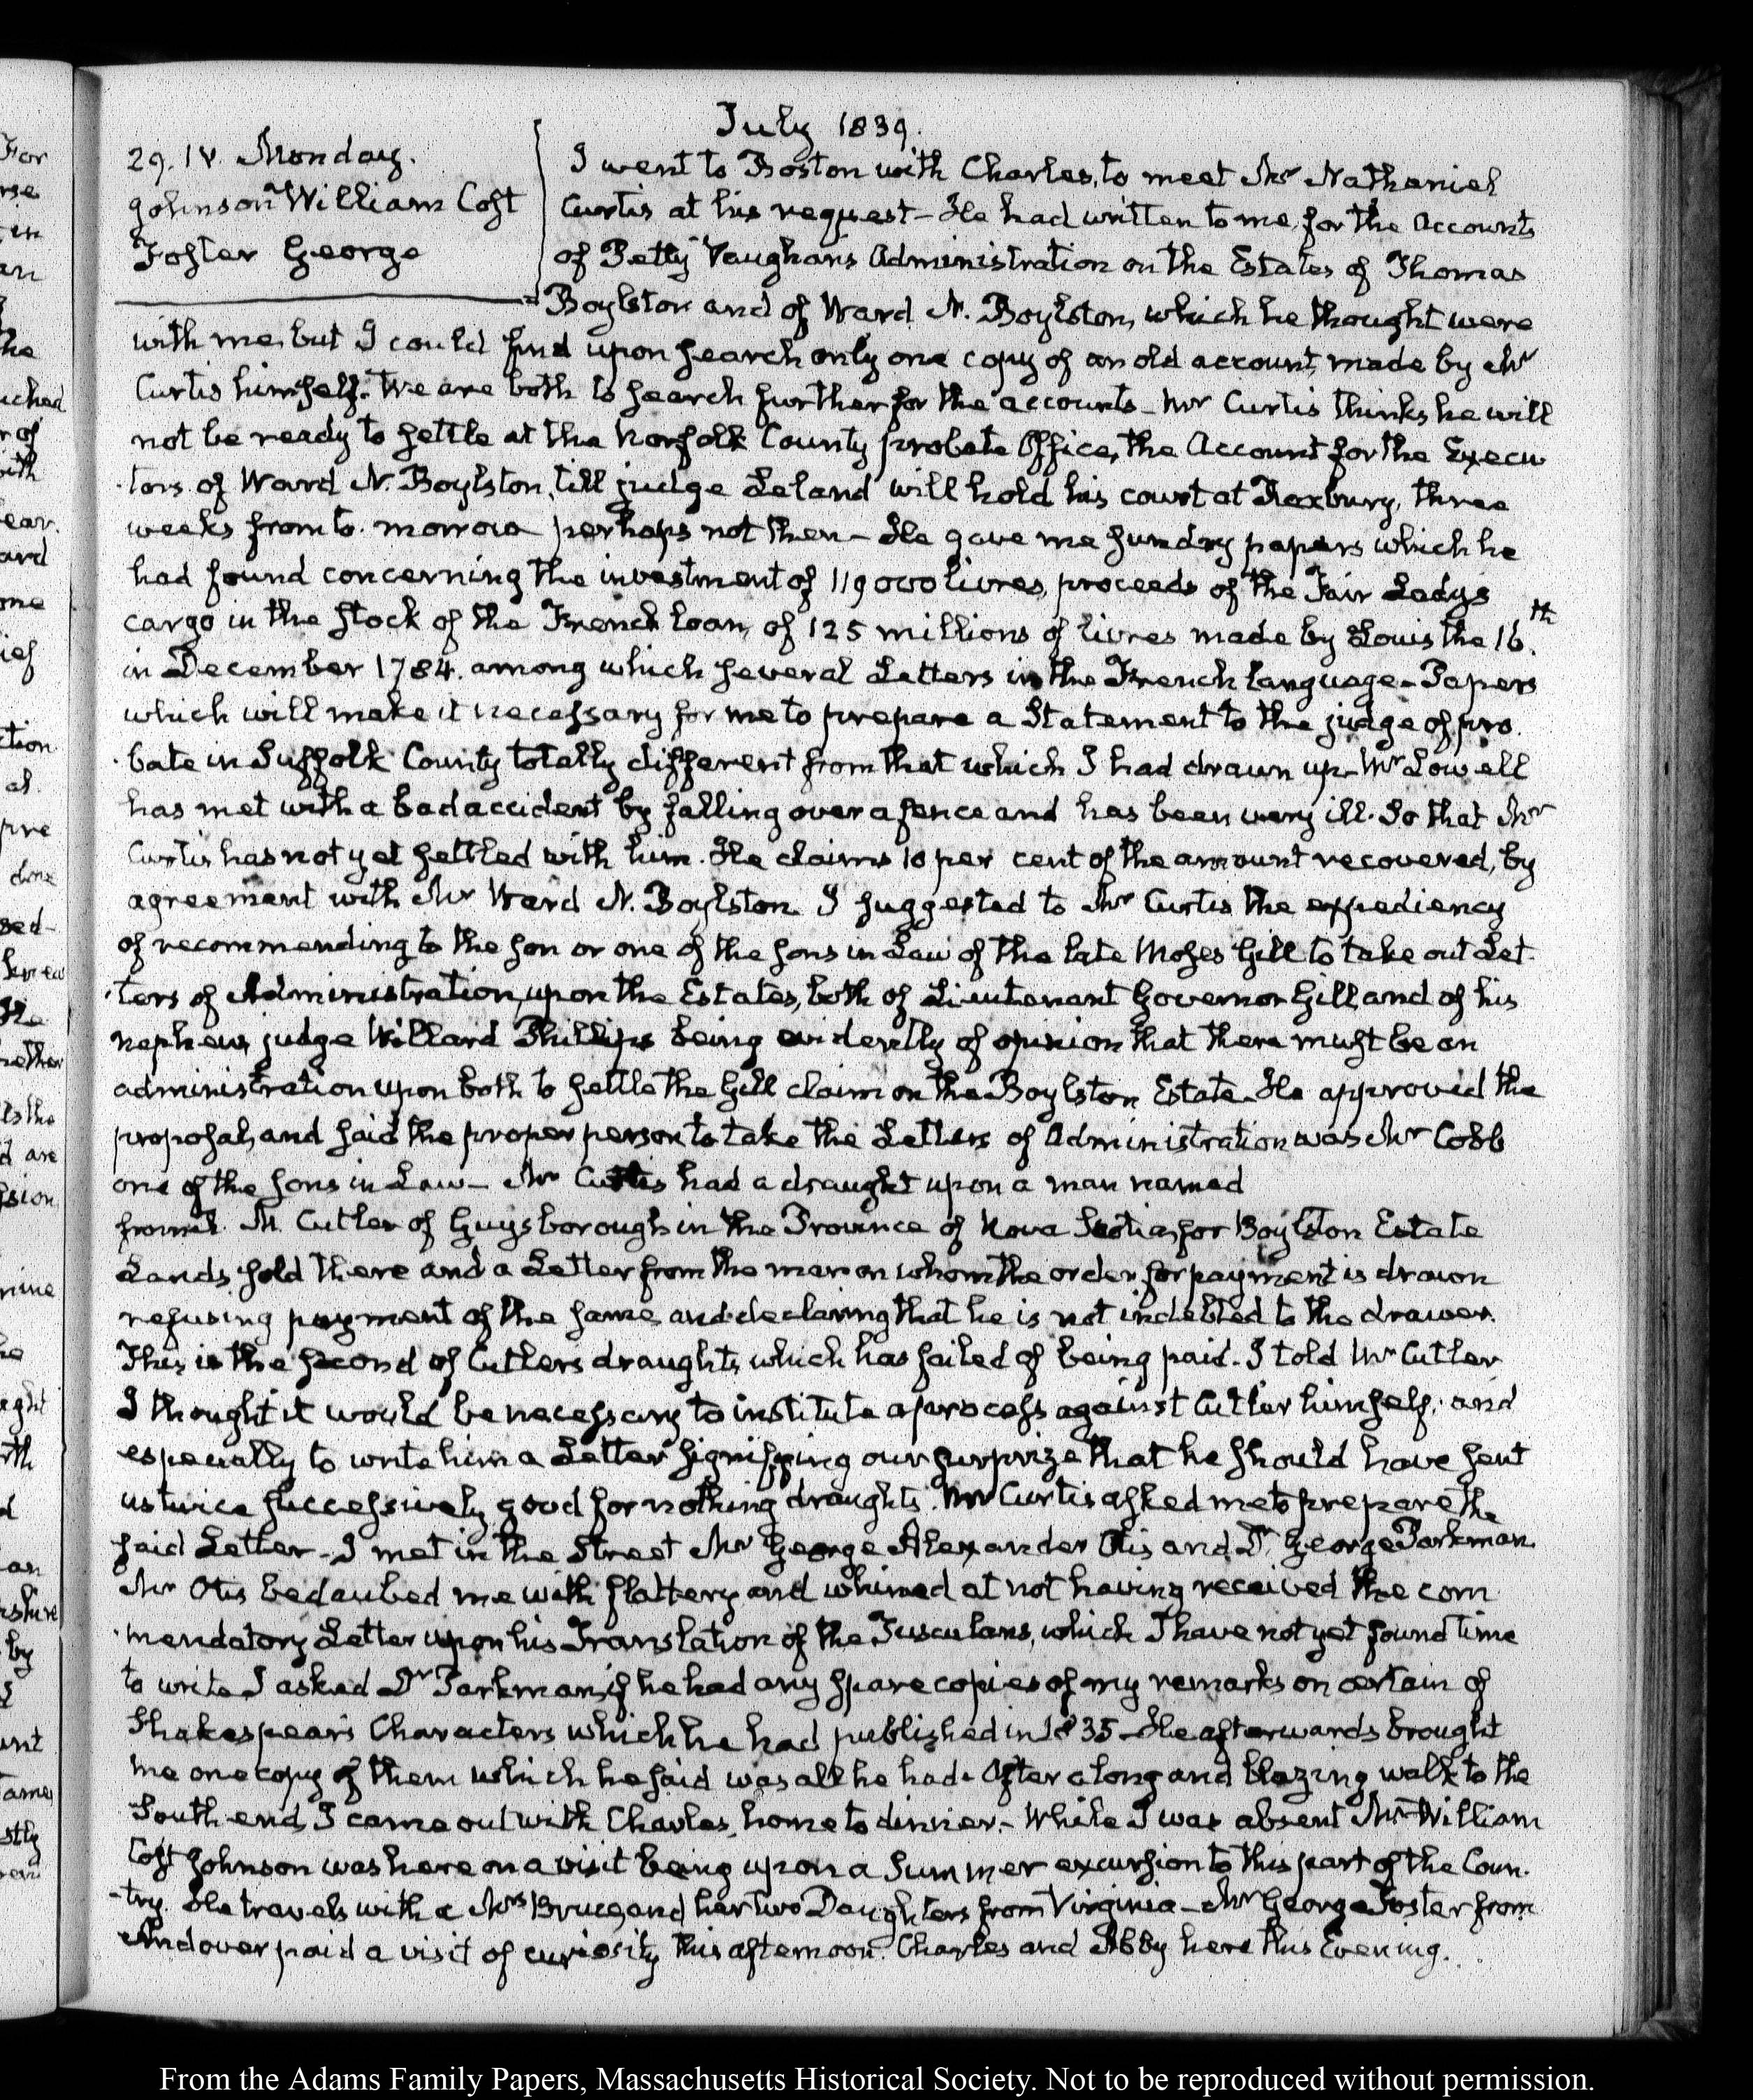 July 1839.
29. IV. Monday.
Johnson William Cost
Foster George
I went to Boston with Charles, to meet Mr Nathaniel
Curtis at his request – He had written to me, for the Accounts
of Petty Vaughan's Administration on the Estates of Thomas
Boylston and of Ward N. Boylston, which he thought were
with me, but I could find upon search only one copy of an old account, made by Mr
Curtis himself. We are both to search further for the accounts – Mr Curtis thinks he will
not be ready to settle at the Norfolk County probate Office, the Account for the Execu
tors of Ward N. Boylston, till judge Leland will hold his court at Roxbury, three
weeks from to-morrow perhaps not then – He gave me sundry papers which he
had found concerning the investment of 119000 livres, proceeds of the Fair Lady's
cargo in the stock of the French loan, of 125 millions of livres made by Louis the 16.th
in December 1784. among which several Letters in the French language – Papers
which will make it necessary for me to prepare a Statement to the judge of pro-
-bate in Suffolk County totally different from that which I had drawn up – Mr Lowell
has met with a bad accident by falling over a fence and has been very ill. So that Mr
Curtis has not yet settled with him. He claims 10 per cent of the amount recovered, by
agreement with Mr Ward N. Boylston. I suggested to Mr Curtis the expediency
of recommending to the son or one of the sons in Law of the late Moses Gill to take out Let-
-ters of Administration upon the Estates, both of Lieutenant Governor Gill and of his
nephew, judge Willard Phillips being evidently of opinion that there must be an
administration upon both to settle the Gill claim on the Boylston Estate. He approved the
proposal, and said the proper person to take the Letters of Administration was Mr Cobb
one of the sons in Law – Mr Curtis had a draught upon a man named
from R. M. Cutler of Guysborough in the Province of Nova Scotia, for Boylston Estate
Lands, sold there and a Letter from the man on whom the order for payment is drawn
refusing payment of the same, and declaring that he is not indebted to the drawer.
This is the second of Cutler's draughts, which has failed of being paid. I told Mr Cutler
I thought it would be necessary to institute a process against Cutler himself; and
especially to write him a Letter signifying our surprize that he should have sent
us twice successively good for nothing draughts. Mr Curtis asked me to prepare the
said Letter – I met in the Street Mr George Alexander Otis and Dr George Parkman.
Mr Otis bedaubed me with flattery and whined at not having received the com
-mendatory Letter upon his Translation of the Tusculans, which I have not yet found time
to write. I asked Dr Parkman, if he had any spare copies of my remarks on certain of
Shakespear's Characters which he had published in 1835 – He afterwards brought
me one copy of them which he said was all he had. After a long and blazing walk to the
South end, I came out with Charles, home to dinner. – While I was absent Mr William
Cost Johnson was here on a visit being upon a Summer excursion to this part of the Coun-
-try. He travels with a Mrs Bruce, and her two Daughters from Virginia – Mr George Foster from
Andover paid a visit of curiosity this afternoon. Charles and Abby here this Evening.
From the Adams Family Papers, Massachusetts Historical Society. Not to be reproduced without permission.